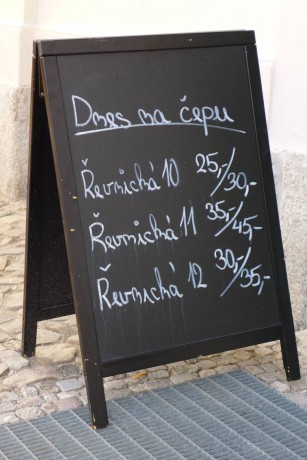 Dnes na čepu
Řevnická 10 25,-/30,-
Řevnická 11 35,-/45,-
Řevnická 12 30,-/35,-